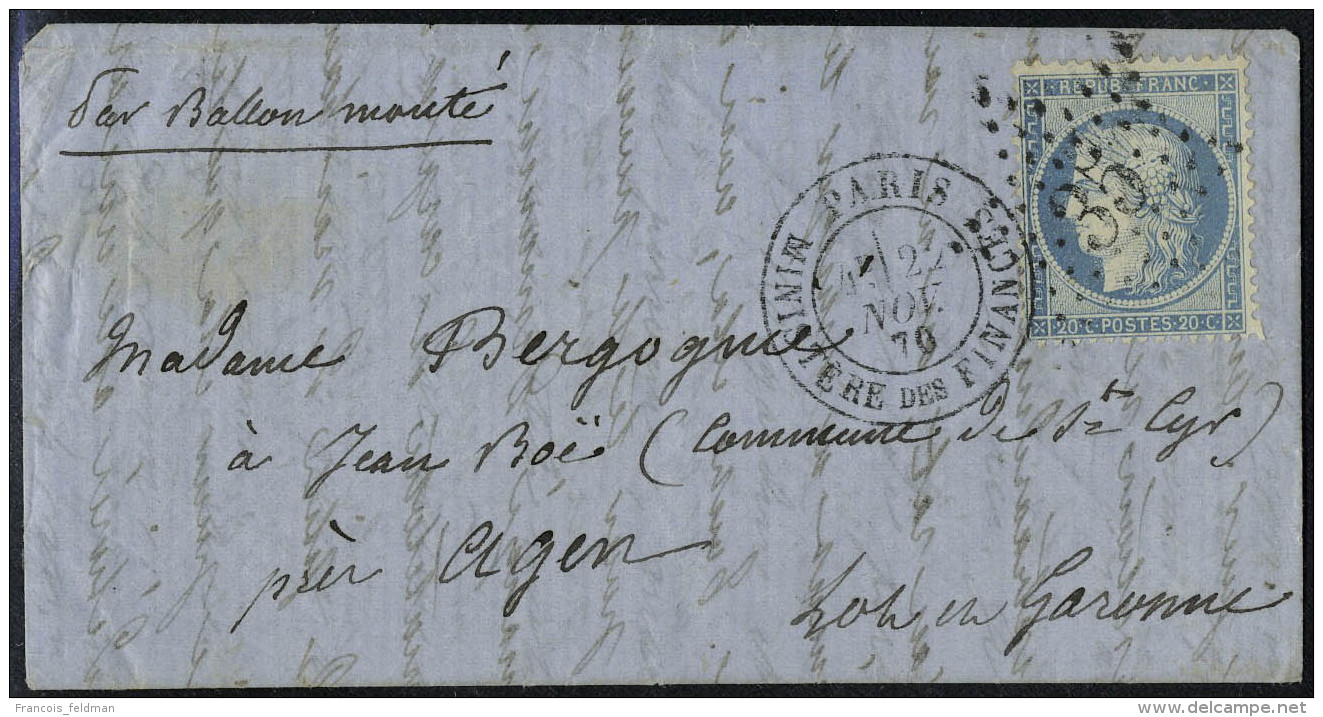 Par Ballon monté
REPUB. FRANC.
35
20·C·POSTES·20·C
PARIS
MINISTERE DES FINANCES
22
NOV.
70
Madame Bergogne
à Jean Boë (Commune de Ste Cyr)
près Agen
Lot en Garonne
Francois_feldman
www.delcampe.net